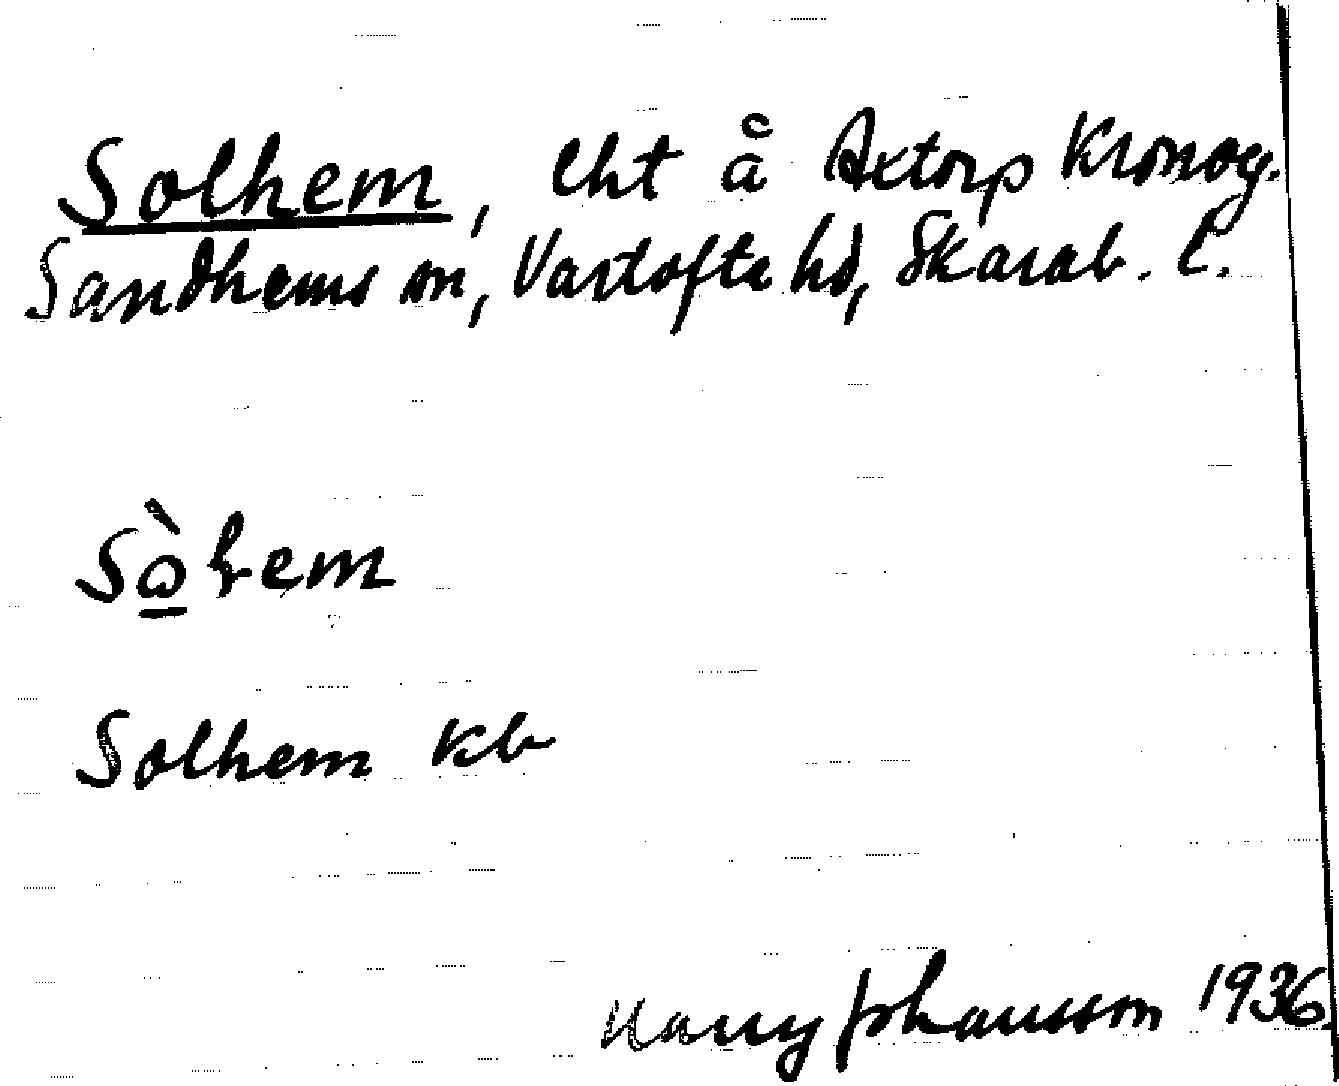 Solhem, lht å Axtorp Kronog.
Sandhems sn, Vartofta hd, Skarab. l.
Sὼhem
Solhem kb
Harry Johansson 1936